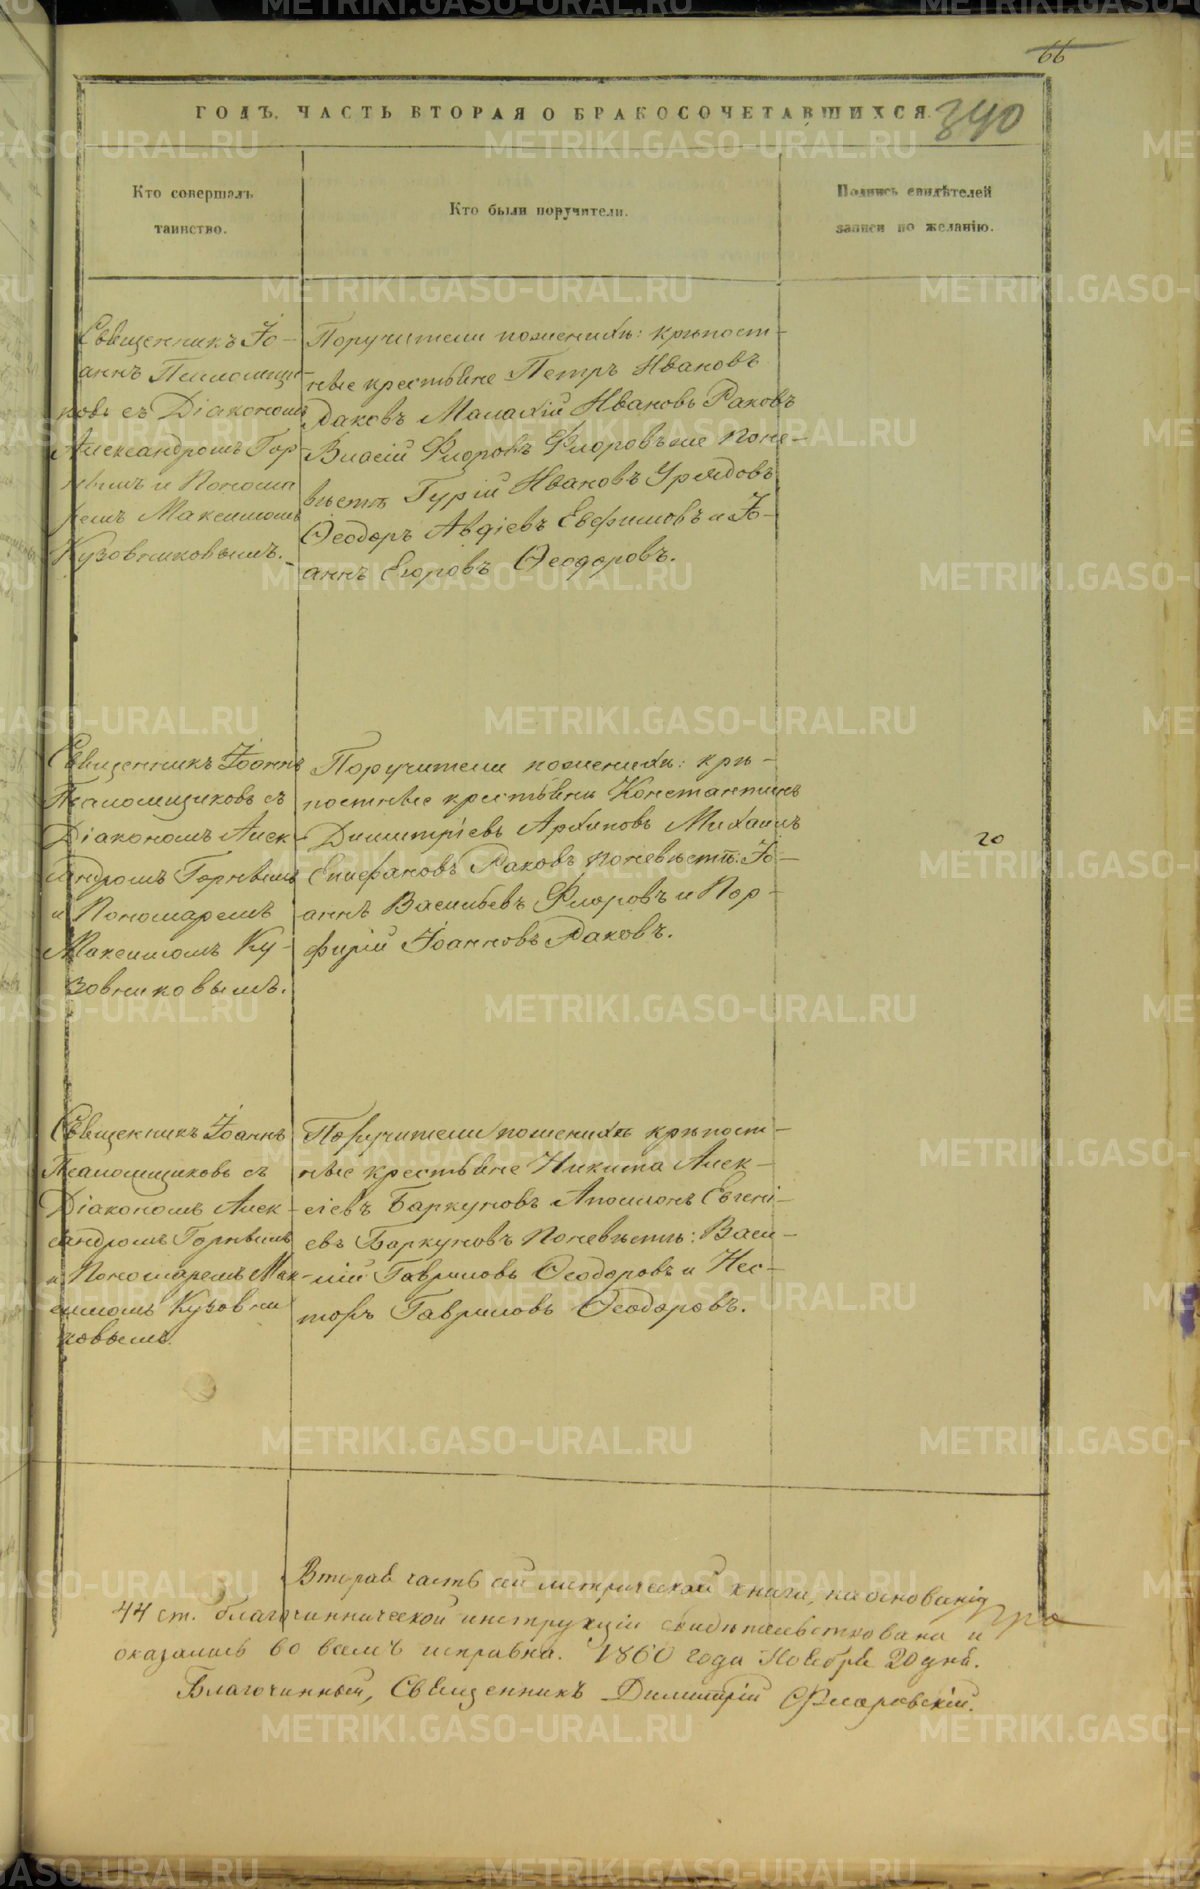 66
ГОДЪ. ЧАСТЬ ВТОРАЯ О БРАКОСОЧЕТАВШИХСЯ.
340
Кто совершалъ
таинство.
Кто были поручители.
Подпись свидѣтелей
записи по желанію.
Священникъ Іо-
аннъ
ковъ съ Діакономъ
Александромъ Гор-
нымъ и Понома
ремъ Максимомъ
Кузовниковымъ.
Поручители по женихѣ: крѣпост-
ные крестьяне Петръ Ивановъ
Раковъ Малахій Ивановъ Раковъ
Власій Флоровъ Флоровъ по не-
вѣстѣ Гурій Ивановъ Урядовъ
Ѳеодоръ Авдіевъ Евфимовъ и Іо-
аннъ Егоровъ Ѳеодоровъ.
Священникъ Іоаннъ
съ
Діакономъ Алек-
сандромъ Горнымъ
и Пономаремъ
Максимомъ Ку-
зовниковымъ.
Поручители по женихѣ: крѣ-
постные крестьяне Константинъ
Димитріевъ Архиповъ Михаилъ
Епифановъ Раковъ по невѣстѣ: Іо-
аннъ Васильевъ Флоровъ и Пор-
фирій Іоанновъ Раковъ.
20
Священникъ Іоаннъ
съ
Діакономъ Алек-
сандромъ Горнымъ
и Пономаремъ Мак-
симомъ Кузовни
ковымъ.
Поручители по женихѣ крѣпост-
ные крестьяне Никита Алек-
сіевъ Баркуновъ Аполлонъ Евгені-
евъ Баркуновъ По невѣстѣ: Васи-
лій Гавриловъ Ѳеодоровъ и Нес-
торъ Гавриловъ Ѳеодоровъ.
Вторая часть сей метрической книги, на основаніи
44 ст. благочиннической инструкціи свидѣтельствована и
оказалась во всемъ исправна. 1860 года Ноября 20 дня.
Благочинный, Священникъ Димитрій Флоровскій.
METRIKI.GASO-URAL.RU